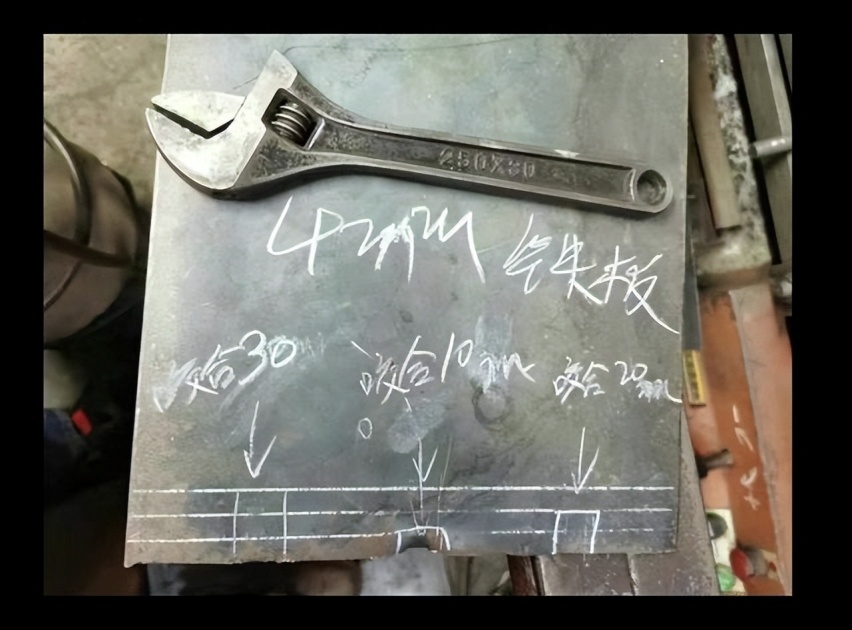 250X30
4mm 铁板
咬合30mm
咬合10mm
咬合20mm